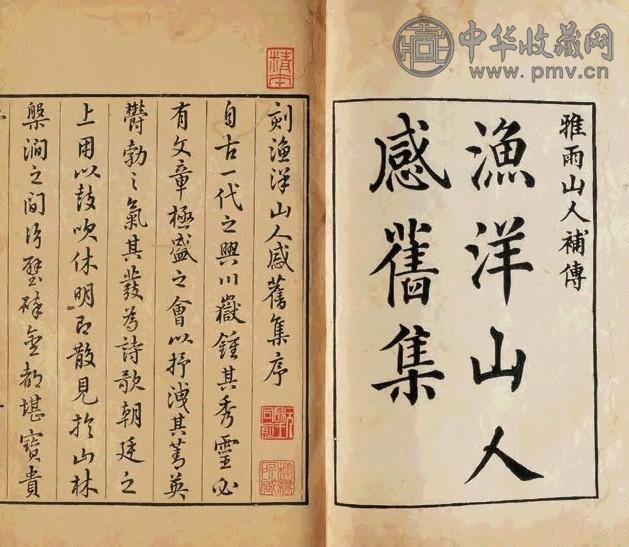 中华收藏网
www.pmv.cn
雅雨山人補傳
漁洋山人
感舊集
刻漁洋山人感舊集序
自古一代之興川嶽鍾其秀靈必
有文章極盛之會以抒洩其菁英
鬱勃之氣其發為詩歌朝廷之
上用以鼓吹休明即散見於山林
槃澗之間片璧碎金都堪寶貴